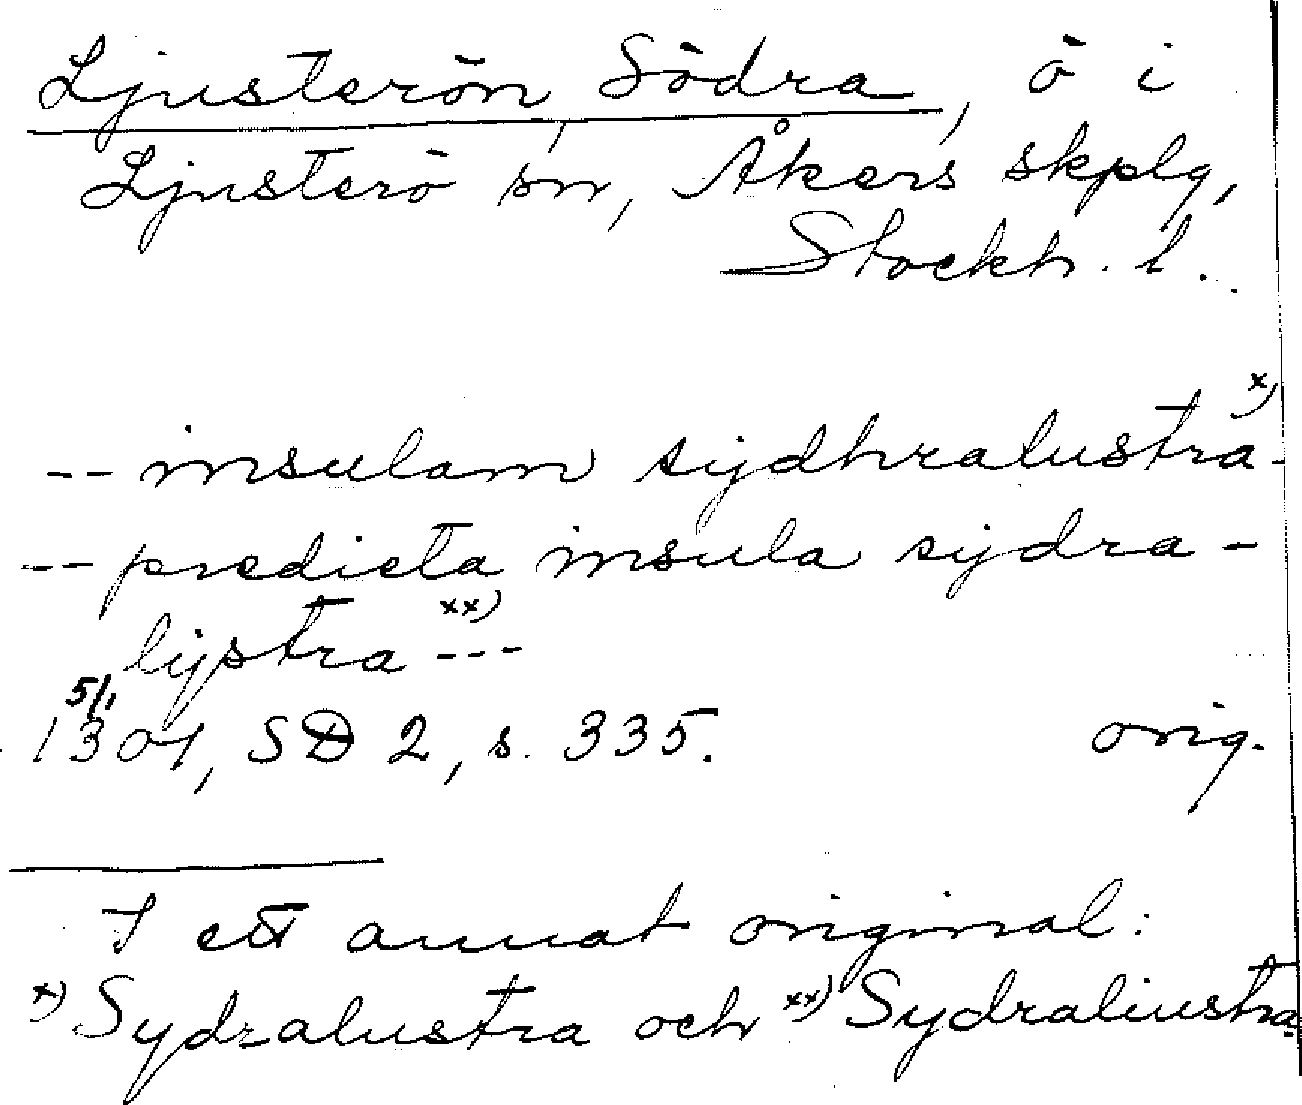 Ljusterön, Södra, ö i
Ljusterö sn, Åkers skplg,
Stockh. l.
-- insulam sijdhralustra x) -
-- predicta insula sijdra -
lijstra xx) ---
5/1
1304, SD 2, s. 335. orig.
I ett annat original:
x) Sydralustra och xx) Sydraliustra